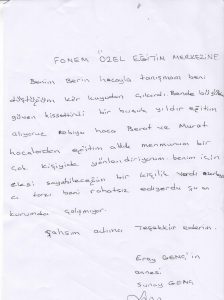 FONEM ÖZEL EĞİTİM MERKEZİNE
Benim Berin hocayla tanışmam beni
düştüğüm kör kuyudan çıkardı. Bende büyük
güven hissettirdi bir buçuk yıldır eğitim
alıyoruz hoca Berat ve Murat
hocalardan eğitim aldık memnunum bir
çok kişiyide yönlendiriyorum benim için
sayabileceğim bir kişilik
tarzı beni rahatsız ediyordu şu an
kurumda çalışmıyor.
Şahsım adıma Teşekkür ederim.
Eray GENÇ'in
annesi
Sunay GENÇ